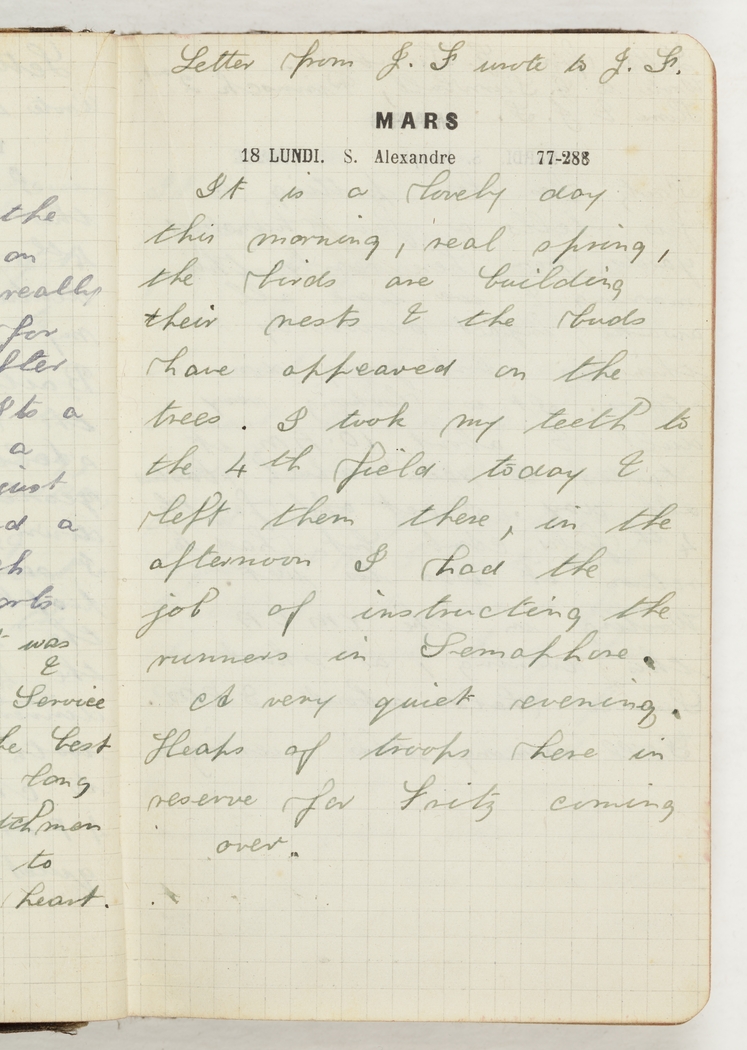 the
on
really
for
Its a
a
just
d a
was
&
Service
best
long
to
heart.
Letter from J. F wrote to J. F.
MARS
18 LUNDI. S. Alexandre 77-288
It is a lovely day
this morning, real spring,
the birds are building
their nests & the buds
have appeared on the
trees. I took my teeth to
the 4th field today &
left them there, in the
afternoon I had the
job of instructing the
runners in Semaphore.
A very quiet evening.
Heaps of troops here in
reserve for Fritz coming
over.